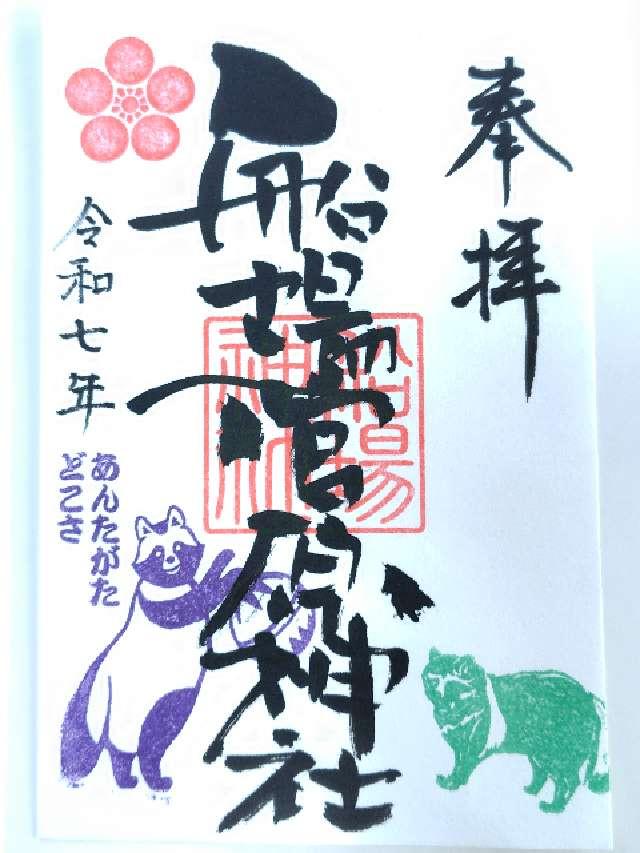 奉拝
船場菅原神社
船場
神社
令和七年
あんたがた
どこさ